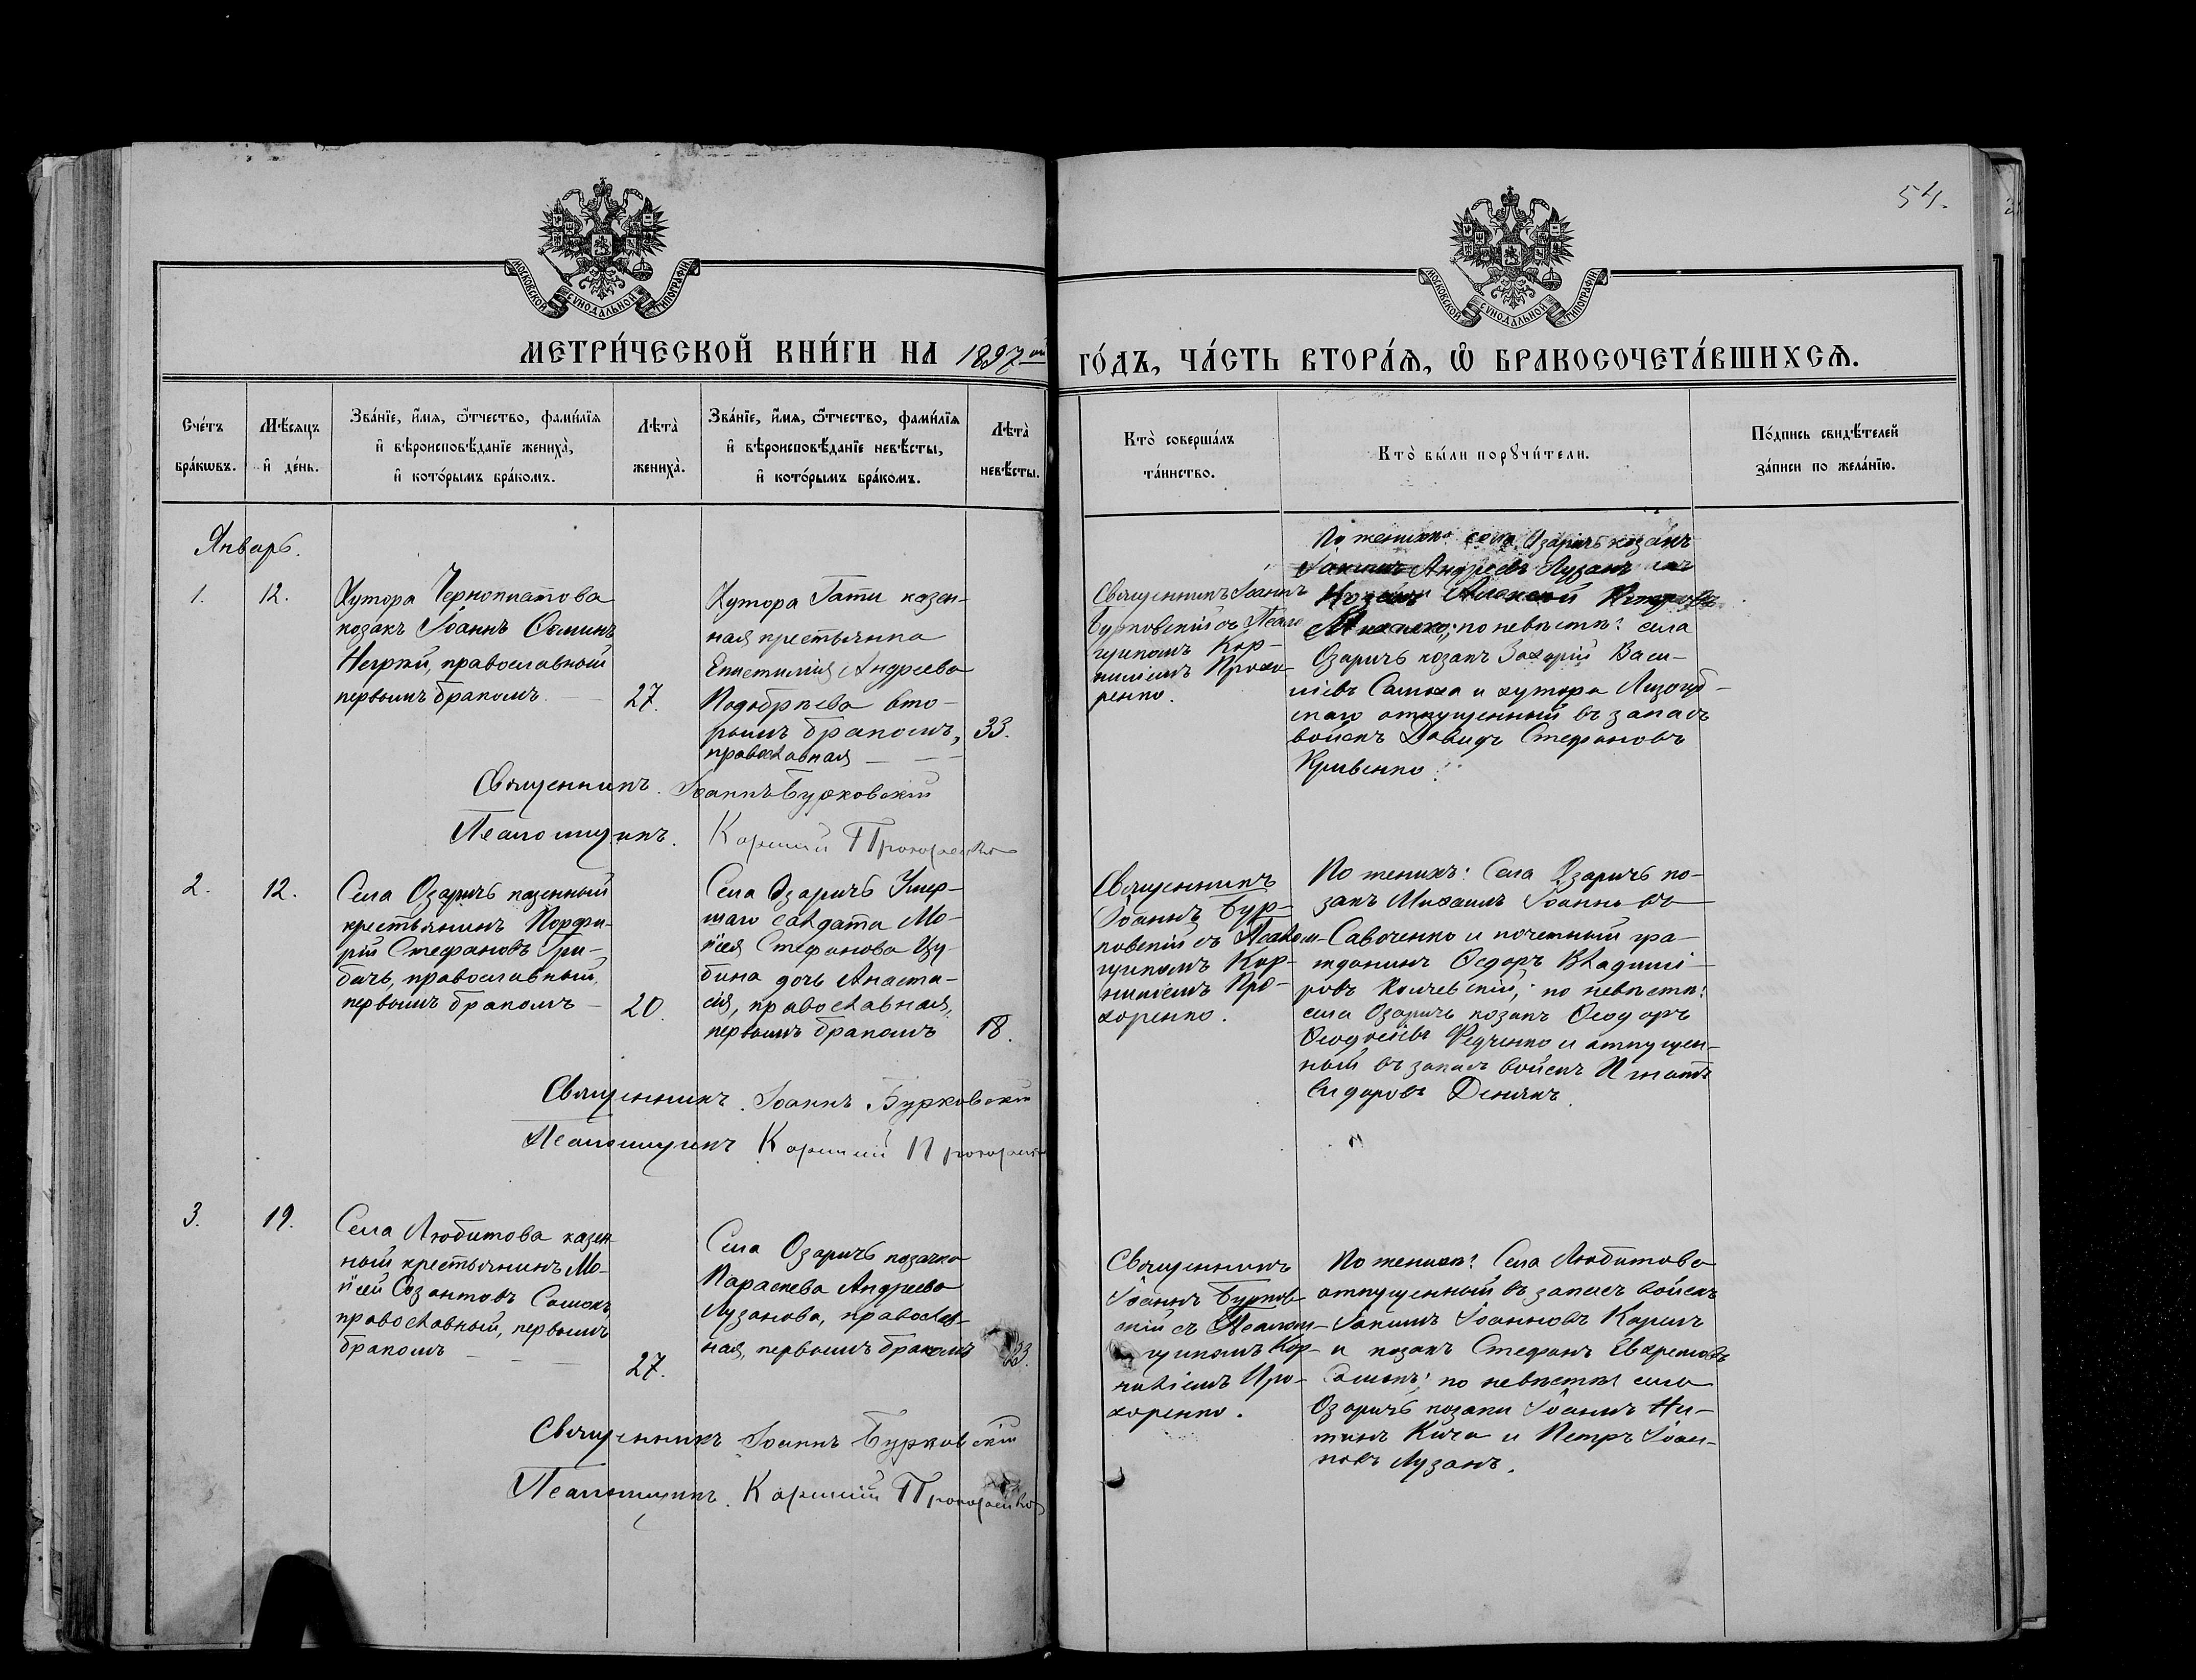 54.
МОСКОВСКОЙ СѴНОДАЛЬНОЙ ТИПОГРАФІИ
МОСКОВСКОЙ СѴНОДАЛЬНОЙ ТИПОГРАФІИ
МЕТРИ́ЧЕСКОЙ КНИ́ГИ НА 1897-ой
ГО́ДЪ, ЧА́СТЬ ВТОРА́Ѧ, Ѡ҆ БРАКОСОЧЕТА́ВШИХСѦ.
Сче́тъ
бра́кѡвъ.
Мѣ́сяцъ
и҆ де́нь.
Зва́нїе, и҆́мя, ѻ҆́тчество, фами́лїя
и҆ вѣроисповѣ́данїе жениха̀,
и҆ кото́рымъ бра́комъ.
Лѣта̀
жениха̀.
Зва́нїе, и҆́мя, ѻ҆́тчество, фами́лїя
и҆ вѣроисповѣ́данїе невѣ́сты,
и҆ кото́рымъ бра́комъ.
Лѣта̀
невѣ́сты.
Кто̀ соверша́лъ
та́инство.
Кто̀ бы́ли порꙋчи́тели.
По́дпись свидѣ́телей
за́писи по жела́нїю.
Январь.
1.
12.
Хутора Чернопиатова
козакъ Іоаннъ Ѳоминъ
Негрій, православный
первымъ бракомъ
27.
Хутора Гати казен-
ная крестьянка
Епистимія Андреева
Подобрѣева вто-
рымъ бракомъ,
православная
33.
Священникъ Іоаннъ
Бурковскій съ Псало
мщикомъ Кор-
ниліемъ Прохо-
ренко.
По женихѣ села Озаричъ козакъ
Іакимъ Андреевъ Лузанъ и
козакъ Алексѣй
по невѣстѣ: села
Озаричъ козакъ Захарій Васи-
ліевъ Самоха и хутора Лизогуб-
скаго отпущенный въ запасъ
войскъ Давидъ Стефановъ
Кривенко.
Священникъ. Іоаннъ Бурковскій
Псаломщикъ. Корнилій Прохоренко
2.
12.
Села Озаричъ казенный
крестьянинъ Порфи-
рій Стефановъ Гри-
бачъ, православный,
первымъ бракомъ
20.
Села Озаричъ Умер-
шаго солдата Мо-
ѵсея Стефанова Цу-
бина дочь Анаста-
сія, православная,
первымъ бракомъ
18.
Священникъ
Іоаннъ Бур-
ковскій съ Псалом-
щикомъ Кор-
ниліемъ Про-
хоренко.
По женихѣ: Села Озаричъ ко-
закъ Михаилъ Іоанновъ
Савоченко и почетный гра-
жданинъ Ѳедоръ Владимі-
ровъ Коичевскій; по невѣстѣ:
села Озаричъ козакъ Ѳеодоръ
Ѳеодосіевъ Федченко и отпущен-
ный въ запасъ войскъ Игнатъ
Сидоровъ Денякъ.
Священникъ. Іоаннъ Бурковскій
Псаломщикъ Корнилій Прохоренко
3.
19.
Села Любитова казен
ный крестьянинъ Мо-
ѵсей Созонтовъ Самокъ
православный, первымъ
бракомъ
27.
Села Озаричъ козачка
Параскева Андреева
Лузанова, православ-
ная, первымъ бракомъ
23.
Священникъ
Іоаннъ Бурков
скій съ Псалом-
щикомъ Кор-
ниліемъ Про-
хоренко.
По женихѣ: Села Любитова
отпущенный въ запасъ войскъ
Іакимъ Іоанновъ Карецъ
и козакъ Стефанъ Евхремовъ
Самокъ; по невѣстѣ: села
Озаричъ козаки Іоаннъ Ни-
тинъ Кича и Петръ Іоан-
новъ Лузанъ.
Священникъ Іоаннъ Бурковскій
Псаломщикъ. Корнилій Прохоренко